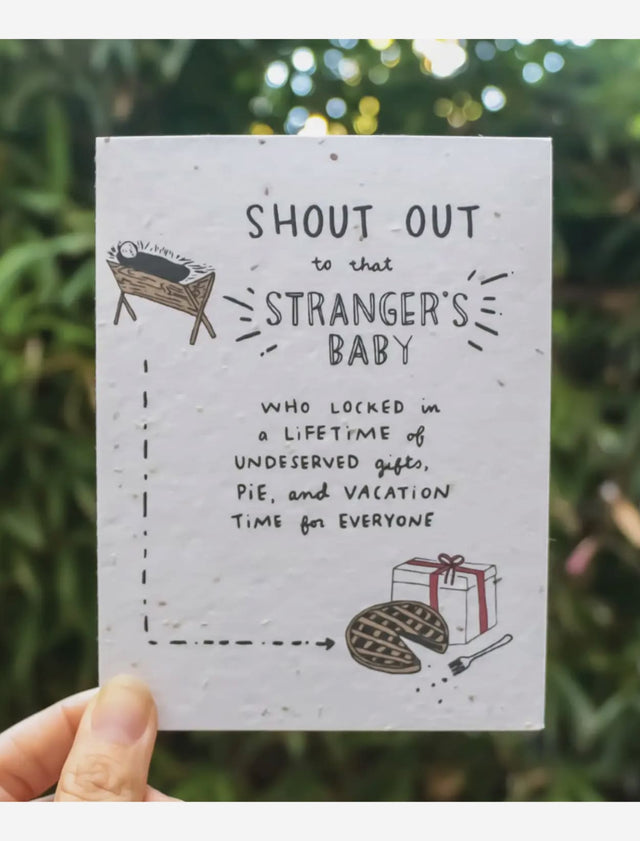 SHOUT OUT
to that
STRANGER'S
BABY
WHO LOCKED in
a LiFETiME of
UNDESERVED gifts,
PiE, and VACATION
TiME for EVERYONE